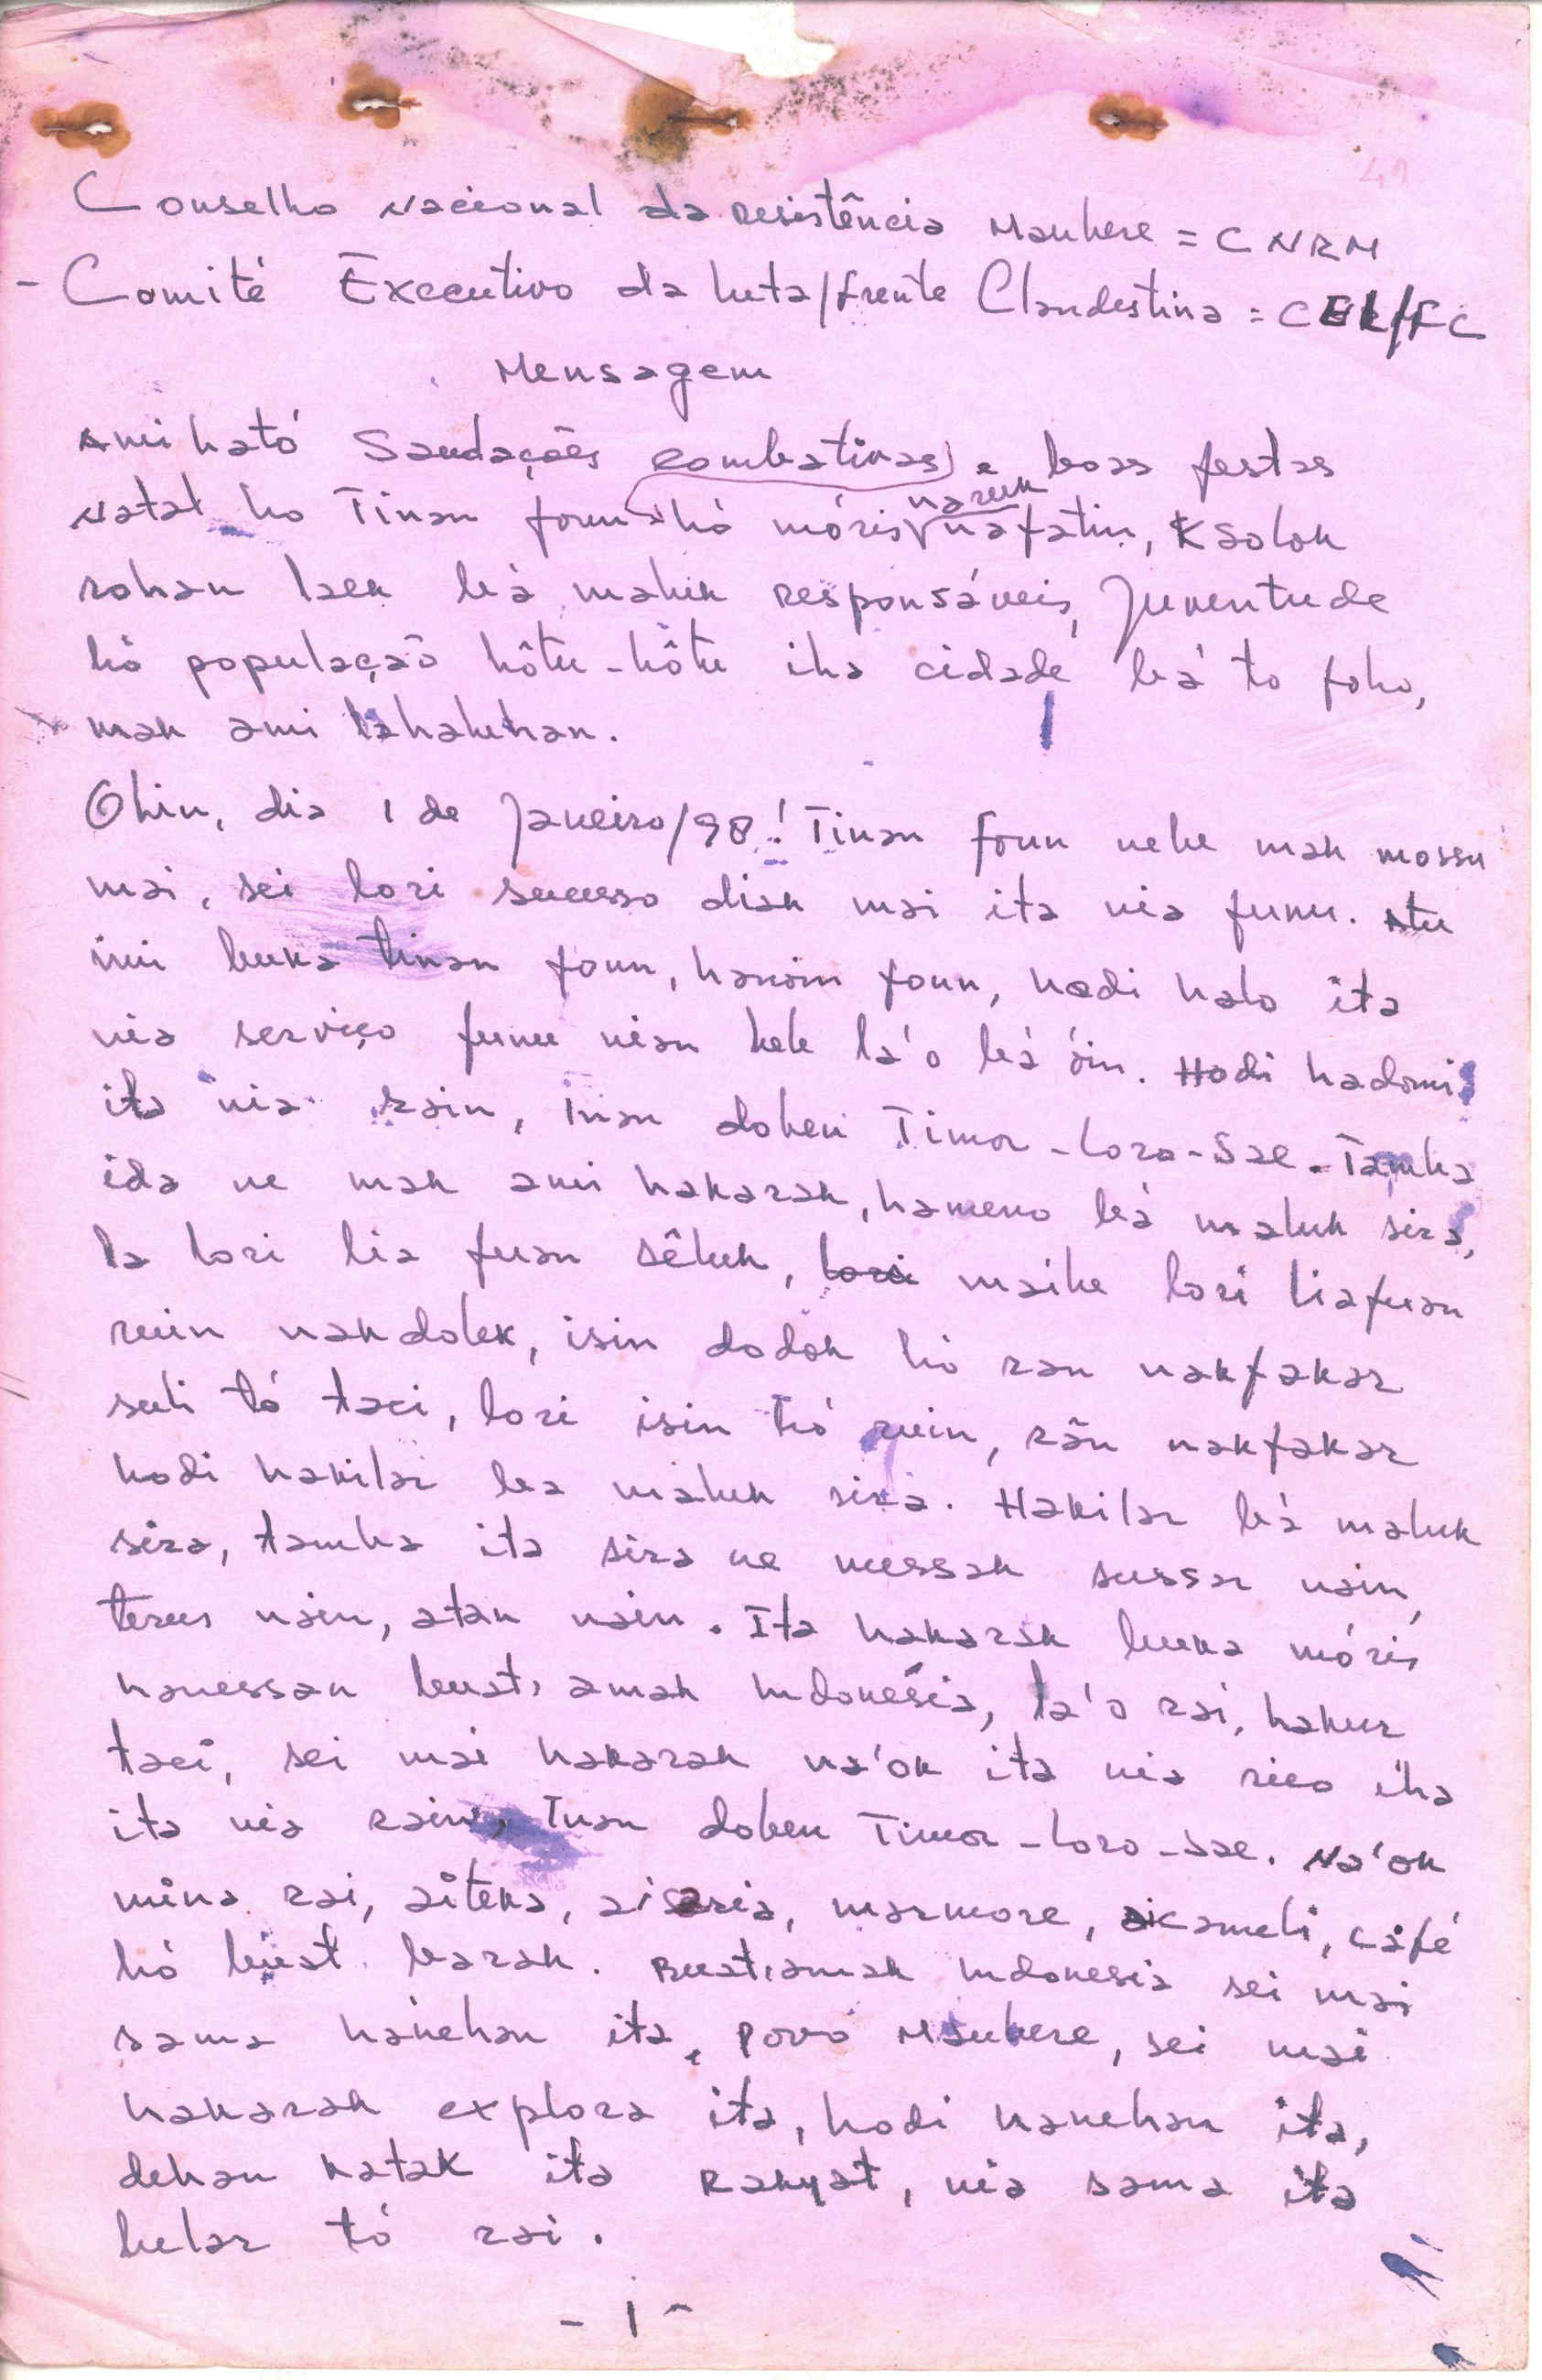 41
Conselho Nacional da Resistência Maubere = CNRM
- Comité Executivo da luta/frente Clandestina = CEL/FC
Mensagem
Ami ható Saudações combativas, e boas festas
Natal ho Tinan foun hó móris naruk nafatin, Ksolok
rohan laek bá maluk responsáveis, Juventude
hó população hôtu-hôtu iha cidade bá to foho,
mak ami lahaluhan.
Ohin, dia 1 de Janeiro/98! Tinan foun nebe mak mossu
mai, sei lori sucesso diak mai ita nia funu. Atu
imi buka tinan foun, hanoin foun, hodi halo ita
nia serviço funu nian bele la'o bá óin. Hodi hadomi
ita nia rain, Inan doben Timor-Loro-Sae. Tamba
ida ne mak ami hakarak, hameno bá maluk sira,
la lori lia fuan sêluk, lori maibe lori liafuan
ruin nakdolek, isin dodok hó ran nakfakar
suli tó taci, lori isin hó ruin, rãn nakfakar
hodi hakilar ba maluk sira. Hakilar bá maluk
sira, tamba ita sira ne messak sussar nain,
terus nain, atan nain. Ita hakarak buka móris
hanessan buat, amak Indonésia, la'o rai, hakur
taci, sei mai hakarak na'ok ita nia rico iha
ita nia rain, Inan doben Timor-Loro-Sae. Na'ok
mina rai, aiteka, aisaria, marmore, aicameli, café
hó buat barak. Buat, amak Indonesia sei mai
sama hanehan ita, povo Maubere, sei mai
hakarak explora ita, hodi hanehan ita,
dehan katak ita Rakyat, nia sama ita
belar tó rai.
- 1 -